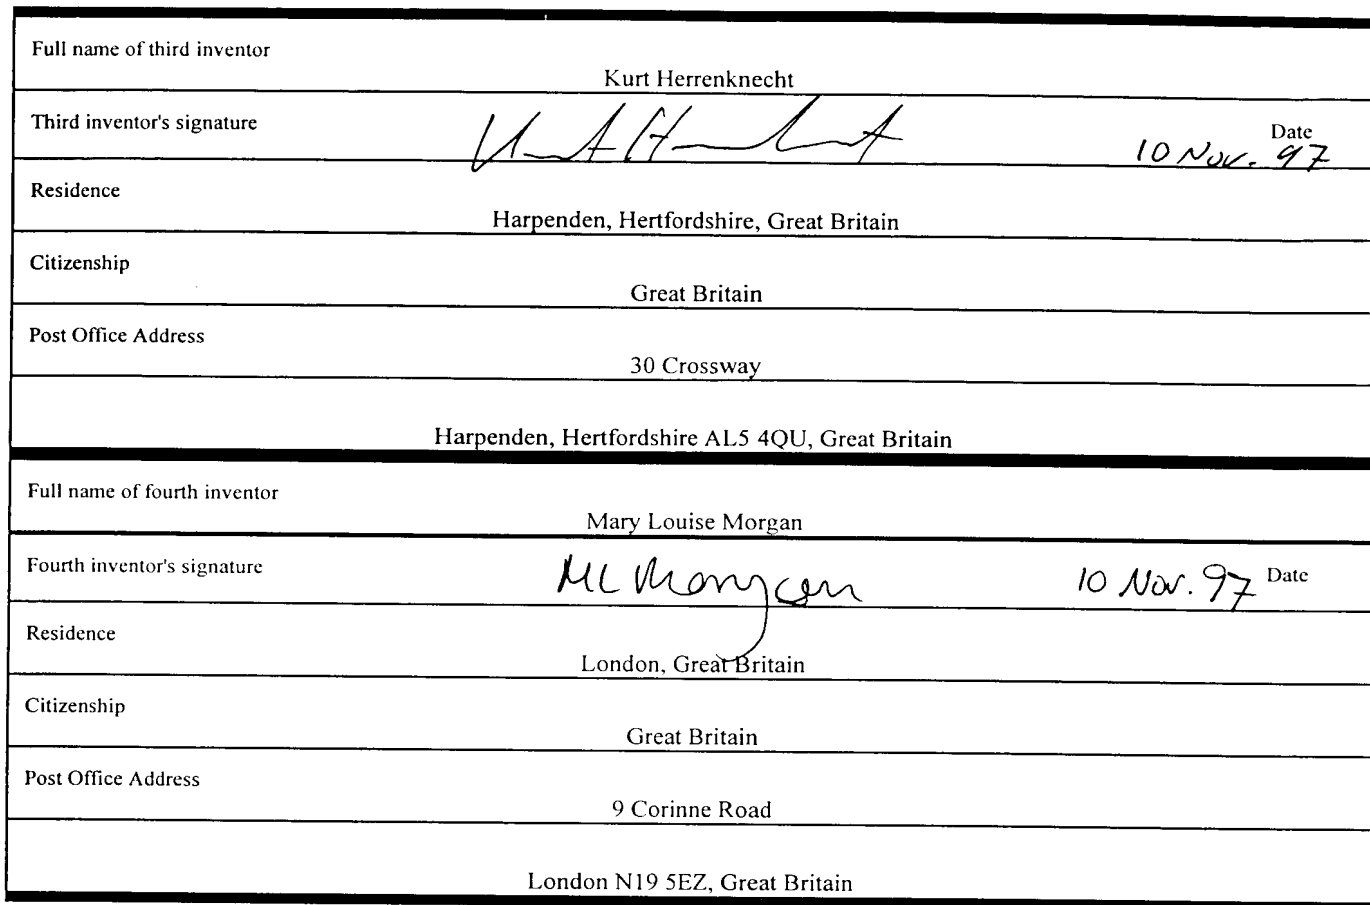 Full name of third inventor
Kurt Herrenknecht
Third inventor's signature
Date
10 Nov. 97
Residence
Harpenden, Hertfordshire, Great Britain
Citizenship
Great Britain
Post Office Address
30 Crossway
Harpenden, Hertfordshire AL5 4QU, Great Britain
Full name of fourth inventor
Mary Louise Morgan
Fourth inventor's signature
ML Morgan
10 Nov. 97 Date
Residence
London, Great Britain
Citizenship
Great Britain
Post Office Address
9 Corinne Road
London N19 5EZ, Great Britain